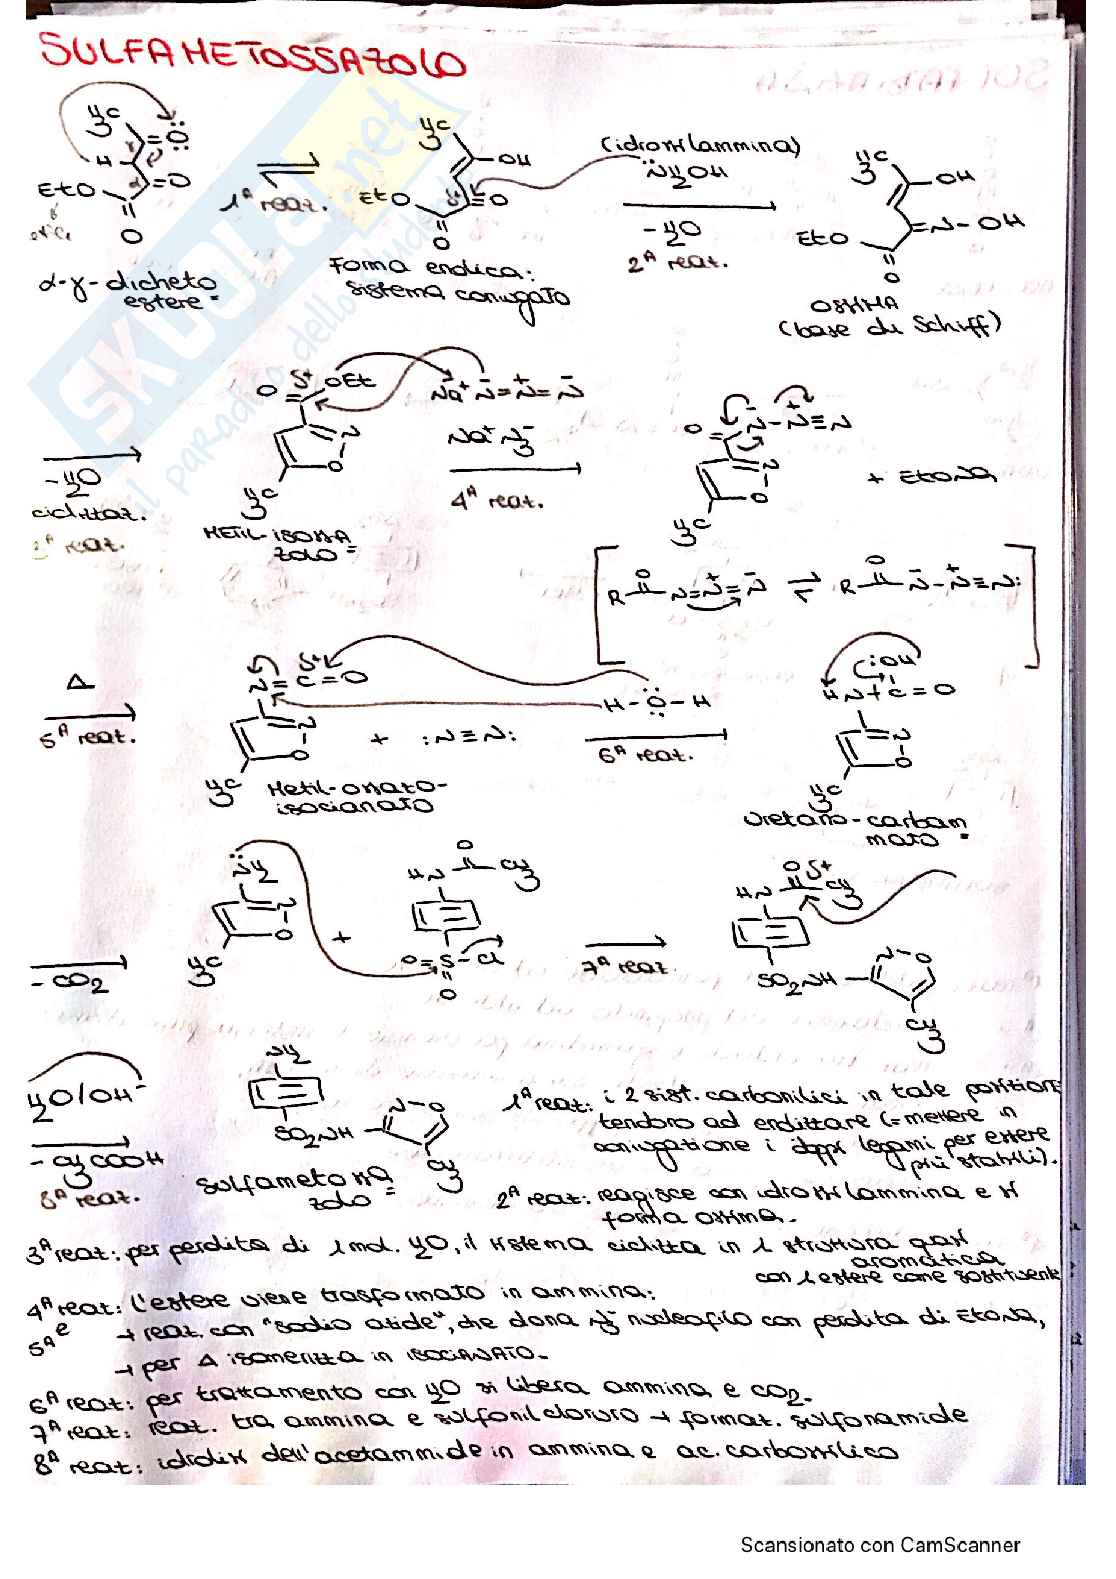 SULFAMETOSSAZOLO
H3C
H
O
EtO
O
O
α-γ-dicheto
estere
1ª reaz.
H3C
OH
EtO
O
O
Forma enolica:
sistema coniugato
(idrossilammina)
N̈H2OH
-H2O
2ª reaz.
H3C
OH
EtO
N-OH
O
OSSIMA
(base di Schiff)
-H2O
ciclizzaz.
3ª reaz.
O
δ+
OEt
N
O
H3C
METIL-ISOSSA
ZOLO
Na+ N=N=N
Na+ N3-
4ª reaz.
O
N-N≡N
N
O
H3C
+ EtONa
R
O
N=N=N
R
O
N-N≡N:
Δ
5ª reaz.
δ+
N=C=O
N
O
H3C
Metil-ossazo-
isocianato
+ :N≡N:
H-O-H
6ª reaz.
:OH
HN-C=O
N
O
H3C
Uretano-carbam
mato
-CO2
N̈H2
N
O
H3C
+
HN
O
CH3
O=S-Cl
O
7ª reaz.
HN
O
δ+
CH3
SO2NH
N-O
CH3
H2O/OH-
-CH3COOH
8ª reaz.
NH2
SO2NH
N-O
CH3
Sulfametossa
zolo
1ª reaz: i 2 sist. carbonilici in tale posizione
tendono ad enolizzare (=mettere in
coniugazione i doppi legami per essere
più stabili).
2ª reaz: reagisce con idrossilammina e si
forma ossima.
3ª reaz: per perdita di 1 mol. H2O, il sistema ciclizza in 1 struttura quasi
aromatica
con l'estere come sostituente
4ª reaz: l'estere viene trasformato in ammina:
5ª e
→ reaz. con "sodio azide", che dona N3- nucleofilo con perdita di EtONa,
→ per Δ isomerizza in ISOCIANATO.
6ª reaz: per trattamento con H2O si libera ammina e CO2.
7ª reaz: reaz. tra ammina e sulfonilcloruro → format. sulfonamide
8ª reaz: idrolisi dell'acetammide in ammina e ac. carbossilico
SKUOLA.net
il paradiso dello studente
Scansionato con CamScanner